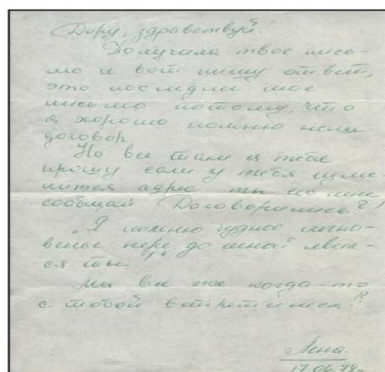 Дору, здравствуй!
Получила твое пись-
мо и вот пишу ответ,
это последнее мое
письмо потому, что
я хорошо помню наш
договор.
Но все таки я тебя
прошу если у тебя изме-
нится адрес ты его мне
сообщай Договорились?!
"Я помню чудное мгно-
венье пере до мной яви-
ся ты"
Мы все же когда-то
с тобой встретимся!?
Лена.
17.06.78